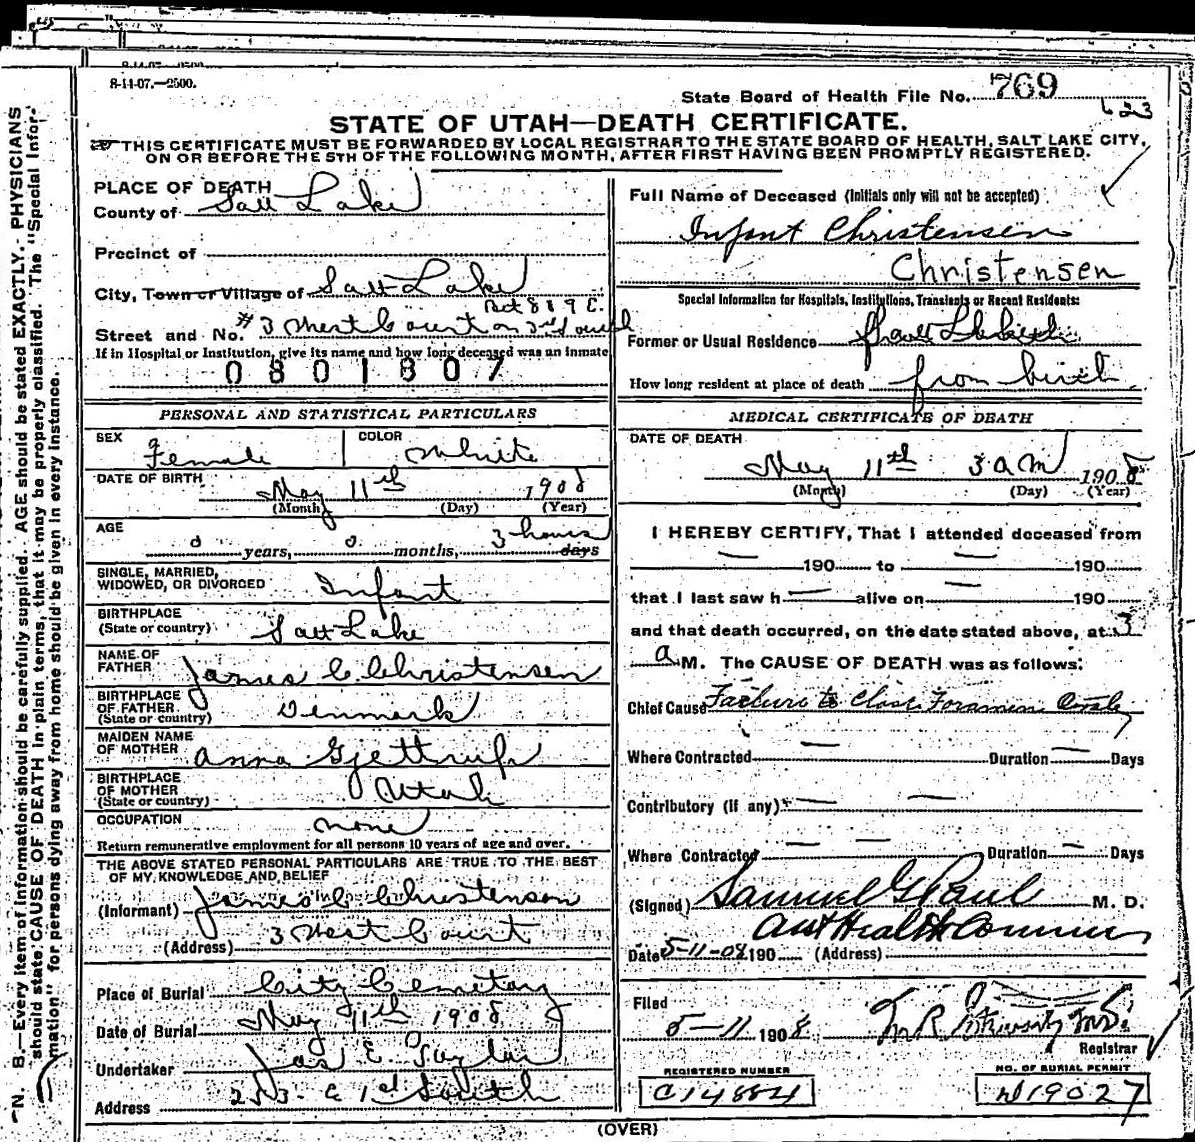 8-14-07.—2500.
State Board of Health File No. 769
623
STATE OF UTAH—DEATH CERTIFICATE.
THIS CERTIFICATE MUST BE FORWARDED BY LOCAL REGISTRAR TO THE STATE BOARD OF HEALTH, SALT LAKE CITY,
ON OR BEFORE THE 5TH OF THE FOLLOWING MONTH, AFTER FIRST HAVING BEEN PROMPTLY REGISTERED.
N. B.—Every item of information should be carefully supplied. AGE should be stated EXACTLY. PHYSICIANS
should state CAUSE OF DEATH in plain terms, that it may be properly classified. The "Special Infor-
mation" for persons dying away from home should be given in every instance.
PLACE OF DEATH
County of Salt Lake
Precinct of
City, Town or Village of Salt Lake
Bet 8 & 9 E.
Street and No. #3 West Court on 3rd South
If in Hospital or Institution, give its name and how long deceased was an inmate
0801807
PERSONAL AND STATISTICAL PARTICULARS
SEX Female
COLOR White
DATE OF BIRTH May 11th 1908
(Month) (Day) (Year)
AGE 0 years, 0 months, 3 hours days
SINGLE, MARRIED,
WIDOWED, OR DIVORCED Infant
BIRTHPLACE
(State or country) Salt Lake
NAME OF
FATHER James C Christensen
BIRTHPLACE
OF FATHER
(State or country) Denmark
MAIDEN NAME
OF MOTHER Anna Gjettrup
BIRTHPLACE
OF MOTHER
(State or country) Utah
OCCUPATION none
Return remunerative employment for all persons 10 years of age and over.
THE ABOVE STATED PERSONAL PARTICULARS ARE TRUE TO THE BEST
OF MY KNOWLEDGE AND BELIEF
(Informant) James C Christensen
(Address) 3 West Court
Place of Burial City Cemetary
Date of Burial May 11th 1908
Undertaker Jos E Taylor
Address 253 E 1st South
Full Name of Deceased (Initials only will not be accepted)
Infant Christensen
Christensen
Special Information for Hospitals, Institutions, Transients or Recent Residents:
Former or Usual Residence
How long resident at place of death from birth
MEDICAL CERTIFICATE OF DEATH
DATE OF DEATH
May 11th 3 am 1908
(Month) (Day) (Year)
I HEREBY CERTIFY, That I attended deceased from
— 190 to — 190
that I last saw h — alive on — 190
and that death occurred, on the date stated above, at 3
a M. The CAUSE OF DEATH was as follows:
Chief Cause Failure to Close Foramen Ovale
Where Contracted — Duration — Days
Contributory (if any) — —
Where Contracted — — Duration — Days
(Signed) Samuel G Paul M. D.
Asst Health Commr
Date 5-11-08 190 (Address)
Filed
5-11 1908
Registrar
REGISTERED NUMBER
C14884
NO. OF BURIAL PERMIT
D19027
(OVER)